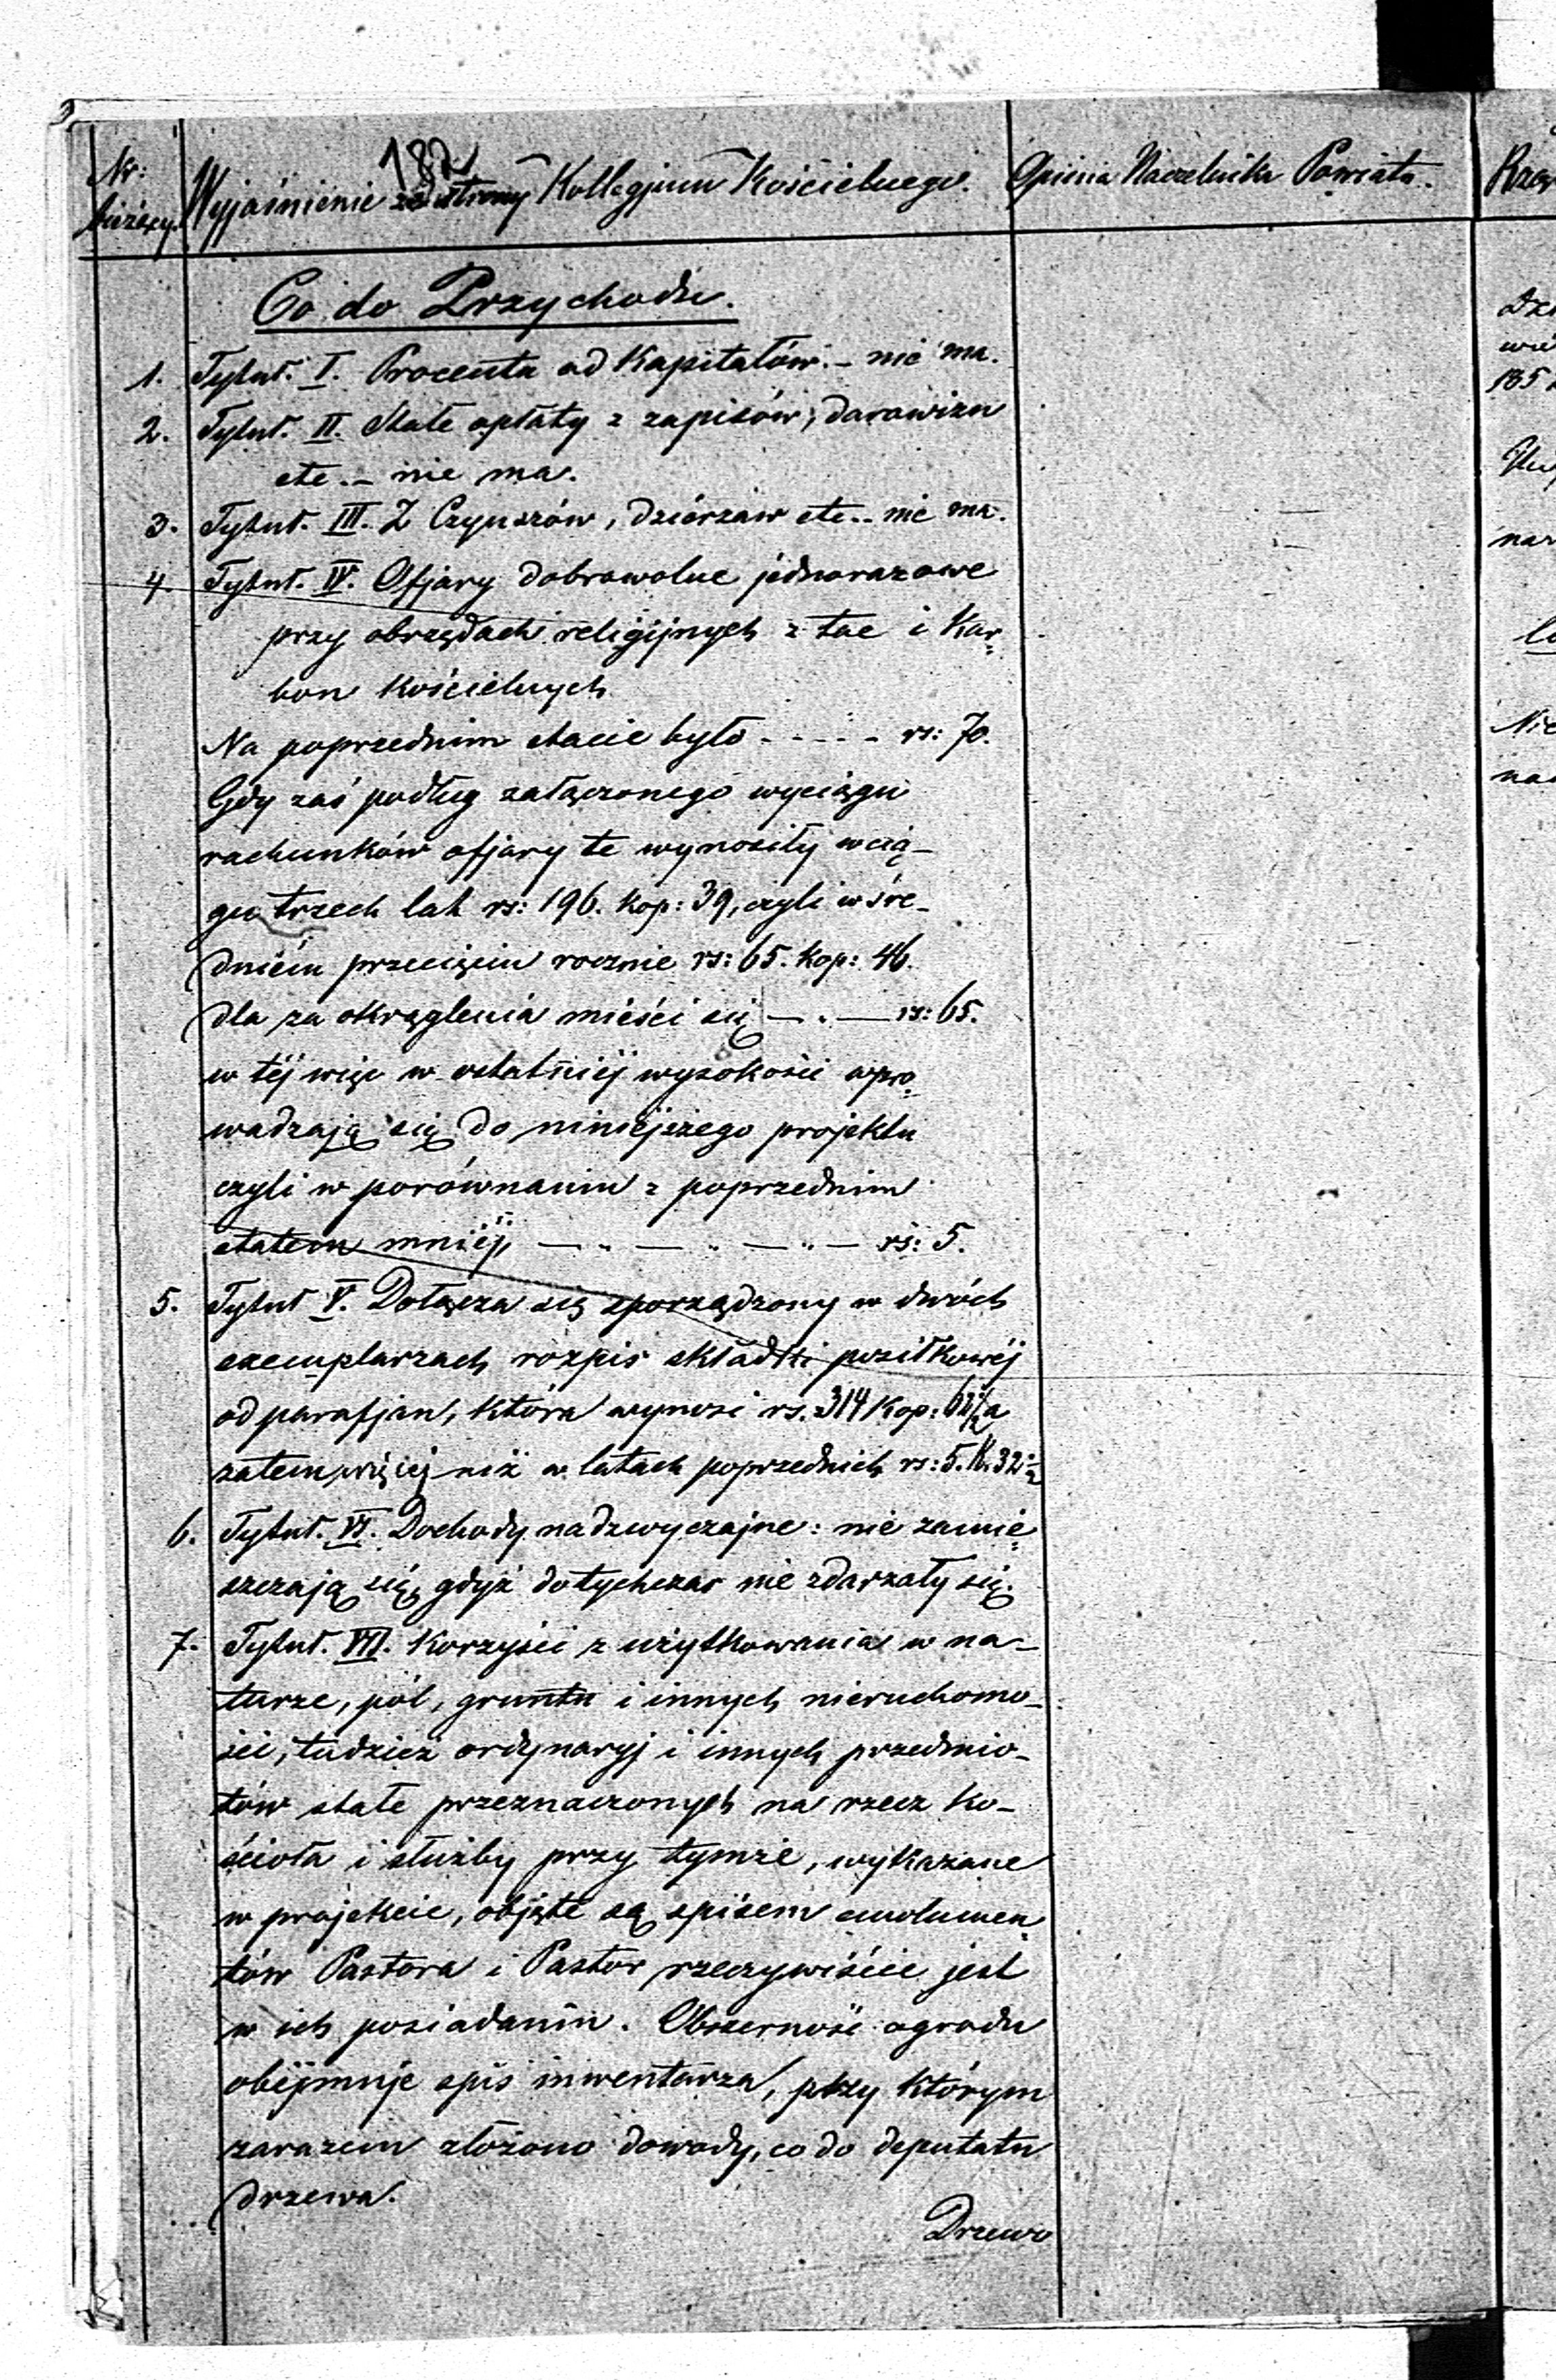 182
Nr: bieżący. Wyjaśnienie ze strony Kollegjum Kościelnego. Opinia Naczelnika Powiatu.
Co do Przychodu.
1. Tytuł. I. Procenta od Kapitałów. – nie ma.
2. Tytuł. II. Stałe opłaty z zapisów, darowizn
etc. – nie ma.
3. Tytuł. III. Z Czynszów, dzierżaw etc. – nie ma.
4. Tytuł. IV. Ofjary dobrowolne jednorazowe
przy obrzędach religijnych z tac i Kar=
bon Kościelnych
Na poprzednim etacie było - - - - - rs: 70.
Gdy zaś podług załączonego wyciągu
rachunków ofjary te wynosiły wcią-
gu trzech lat rs: 196. Kop: 39, czyli w śre-
dniém przecięciu rocznie rs: 65. Kop: 46.
dla za okrąglenia mieści się — „ — rs: 65.
w téj więc w ostatniéj wysokości wpro=
wadzają się do niniéjszego projektu
czyli w porównaniu z poprzednim
etatem mniéj, — „ — „ — „ — rs: 5.
5. Tytuł V. Dołącza się sporządzony w dwóch
exemplarzach rozpis składki posiłkowéj
od parafjan, która wynosi rs. 314 Kop: a
zatem więcéj niż w latach poprzednich rs: 5. K. 32½
6. Tytuł. VI. Dochody nadzwyczajne: nie zamie=
szczają się, gdyż dotychczas nie zdarzały się.
7. Tytuł. VII. Korzyści z użytkowania w na-
turze, pól, gruntu i innych nieruchomo-
ści, tudzież ordynaryj i innych przedmio-
tów stale przeznaczonych na rzecz Ko-
ścioła i służby przy tymże, wykazane
w projekcie, objęte są spisem emolumen=
tów Pastora i Pastor rzeczywiście jest
w ich posiadaniu. Obszerność ogrodu
obéjmuje spis inwentarza, przy którym
zarazem złożono dowody, co do deputatu
drzewa.
Drzewo